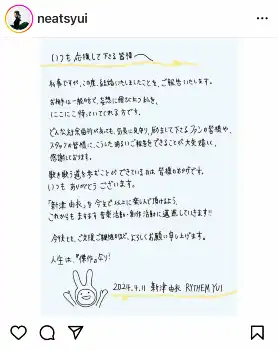 neatsyui
いつも応援して下さる皆様へ
私事ですが、この度、結婚いたしましたことを、ご報告いたします。
お相手は一般の方で、妄想に飛び立つ私を、
にこにこ待っていてくれる方です。
どんな紆余曲折があっても、気長に見守り、励まして下さるファンの皆様や
スタッフの皆様に、こうした明るいご報告をできることが大変嬉しく、
感謝しております。
歌を歌う道を歩むことができているのは皆様のおかげです。
いつもありがとうございます。
「新津由衣」を今まで以上に楽しんで頂けるよう、
これからもますます音楽活動・創作活動に邁進していきます!!
今後とも、ご支援ご鞭撻のほど、よろしくお願い申し上げます。
人生は、『傑作』なり!
2024.9.11 新津由衣 RYTHEM YUI